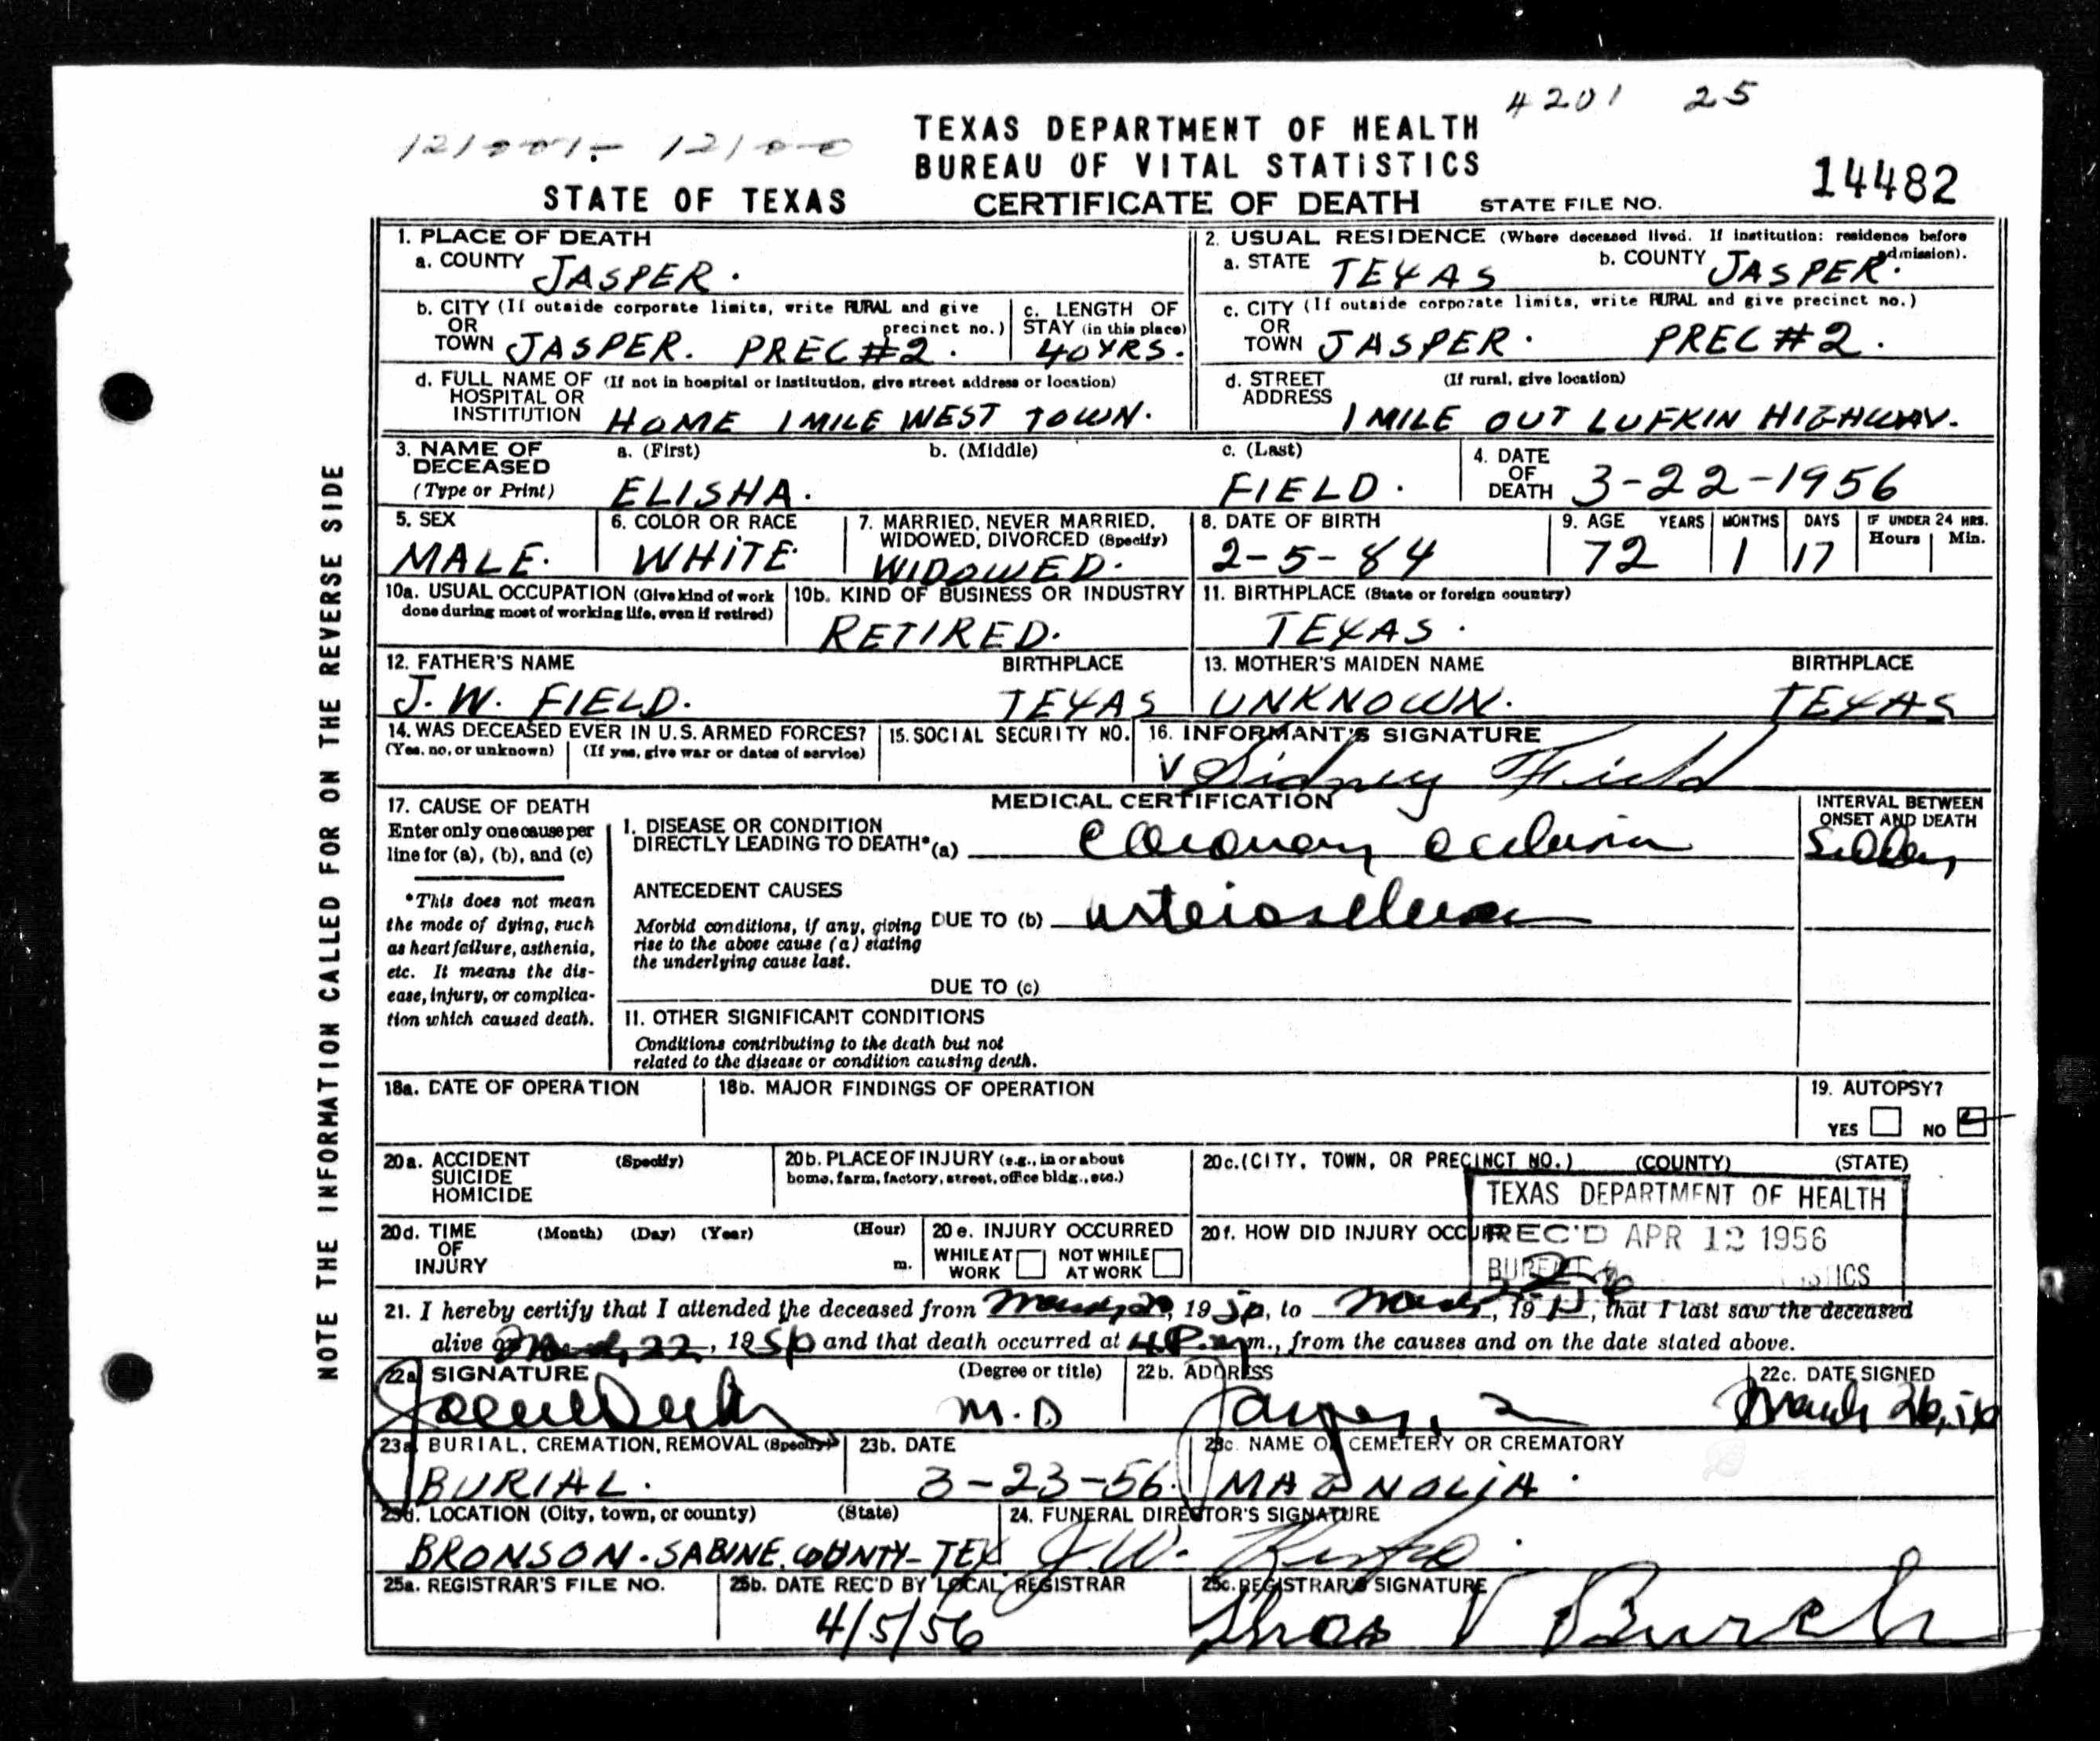 4201 25
TEXAS DEPARTMENT OF HEALTH
BUREAU OF VITAL STATISTICS
STATE OF TEXAS CERTIFICATE OF DEATH STATE FILE NO. 14482
NOTE THE INFORMATION CALLED FOR ON THE REVERSE SIDE
1. PLACE OF DEATH
a. COUNTY JASPER.
2. USUAL RESIDENCE (Where deceased lived. If institution: residence before admission).
a. STATE TEXAS b. COUNTY JASPER.
b. CITY (If outside corporate limits, write RURAL and give precinct no.)
OR
TOWN JASPER. PREC #2.
c. LENGTH OF
STAY (in this place)
40 YRS.
c. CITY (If outside corporate limits, write RURAL and give precinct no.)
OR
TOWN JASPER. PREC #2.
d. FULL NAME OF (If not in hospital or institution, give street address or location)
HOSPITAL OR
INSTITUTION HOME 1 MILE WEST TOWN.
d. STREET (If rural, give location)
ADDRESS 1 MILE OUT LUFKIN HIGHWAY.
3. NAME OF a. (First) b. (Middle) c. (Last)
DECEASED
(Type or Print) ELISHA. FIELD.
4. DATE
OF
DEATH 3-22-1956
5. SEX
MALE.
6. COLOR OR RACE
WHITE.
7. MARRIED, NEVER MARRIED,
WIDOWED, DIVORCED (Specify)
WIDOWED.
8. DATE OF BIRTH
2-5-84
9. AGE YEARS MONTHS DAYS IF UNDER 24 HRS.
Hours Min.
72 1 17
10a. USUAL OCCUPATION (Give kind of work
done during most of working life, even if retired)
10b. KIND OF BUSINESS OR INDUSTRY
RETIRED.
11. BIRTHPLACE (State or foreign country)
TEXAS.
12. FATHER'S NAME BIRTHPLACE
J.W. FIELD. TEXAS
13. MOTHER'S MAIDEN NAME BIRTHPLACE
UNKNOWN. TEXAS
14. WAS DECEASED EVER IN U.S. ARMED FORCES?
(Yes, no, or unknown) (If yes, give war or dates of service)
15. SOCIAL SECURITY NO.
16. INFORMANT'S SIGNATURE
Sidney Field
17. CAUSE OF DEATH
Enter only one cause per
line for (a), (b), and (c)
*This does not mean
the mode of dying, such
as heart failure, asthenia,
etc. It means the dis-
ease, injury, or complica-
tion which caused death.
MEDICAL CERTIFICATION
I. DISEASE OR CONDITION
DIRECTLY LEADING TO DEATH* (a) Coronary occlusion
ANTECEDENT CAUSES
Morbid conditions, if any, giving
rise to the above cause (a) stating
the underlying cause last.
DUE TO (b)
DUE TO (c)
INTERVAL BETWEEN
ONSET AND DEATH
II. OTHER SIGNIFICANT CONDITIONS
Conditions contributing to the death but not
related to the disease or condition causing death.
18a. DATE OF OPERATION
18b. MAJOR FINDINGS OF OPERATION
19. AUTOPSY?
YES NO
20a. ACCIDENT (Specify)
SUICIDE
HOMICIDE
20b. PLACE OF INJURY (e.g., in or about
home, farm, factory, street, office bldg., etc.)
20c. (CITY, TOWN, OR PRECINCT NO.) (COUNTY) (STATE)
TEXAS DEPARTMENT OF HEALTH
REC'D APR 12 1956
20d. TIME (Month) (Day) (Year) (Hour)
OF
INJURY m.
20e. INJURY OCCURRED
WHILE AT WORK NOT WHILE AT WORK
20f. HOW DID INJURY
21. I hereby certify that I attended the deceased from 19 to 19 that I last saw the deceased
alive March 22, 1956 and that death occurred at 4 P. m., from the causes and on the date stated above.
22a SIGNATURE (Degree or title)
M.D
22b. ADDRESS
22c. DATE SIGNED
March 26, 56
23a. BURIAL, CREMATION, REMOVAL (Specify)
BURIAL.
23b. DATE
3-23-56.
23c. NAME OF CEMETERY OR CREMATORY
MAGNOLIA.
23d. LOCATION (City, town, or county) (State)
BRONSON. SABINE. COUNTY-TEX
24. FUNERAL DIRECTOR'S SIGNATURE
J.W.
25a. REGISTRAR'S FILE NO.
25b. DATE REC'D BY LOCAL REGISTRAR
4/5/56
25c. REGISTRAR'S SIGNATURE
Burch